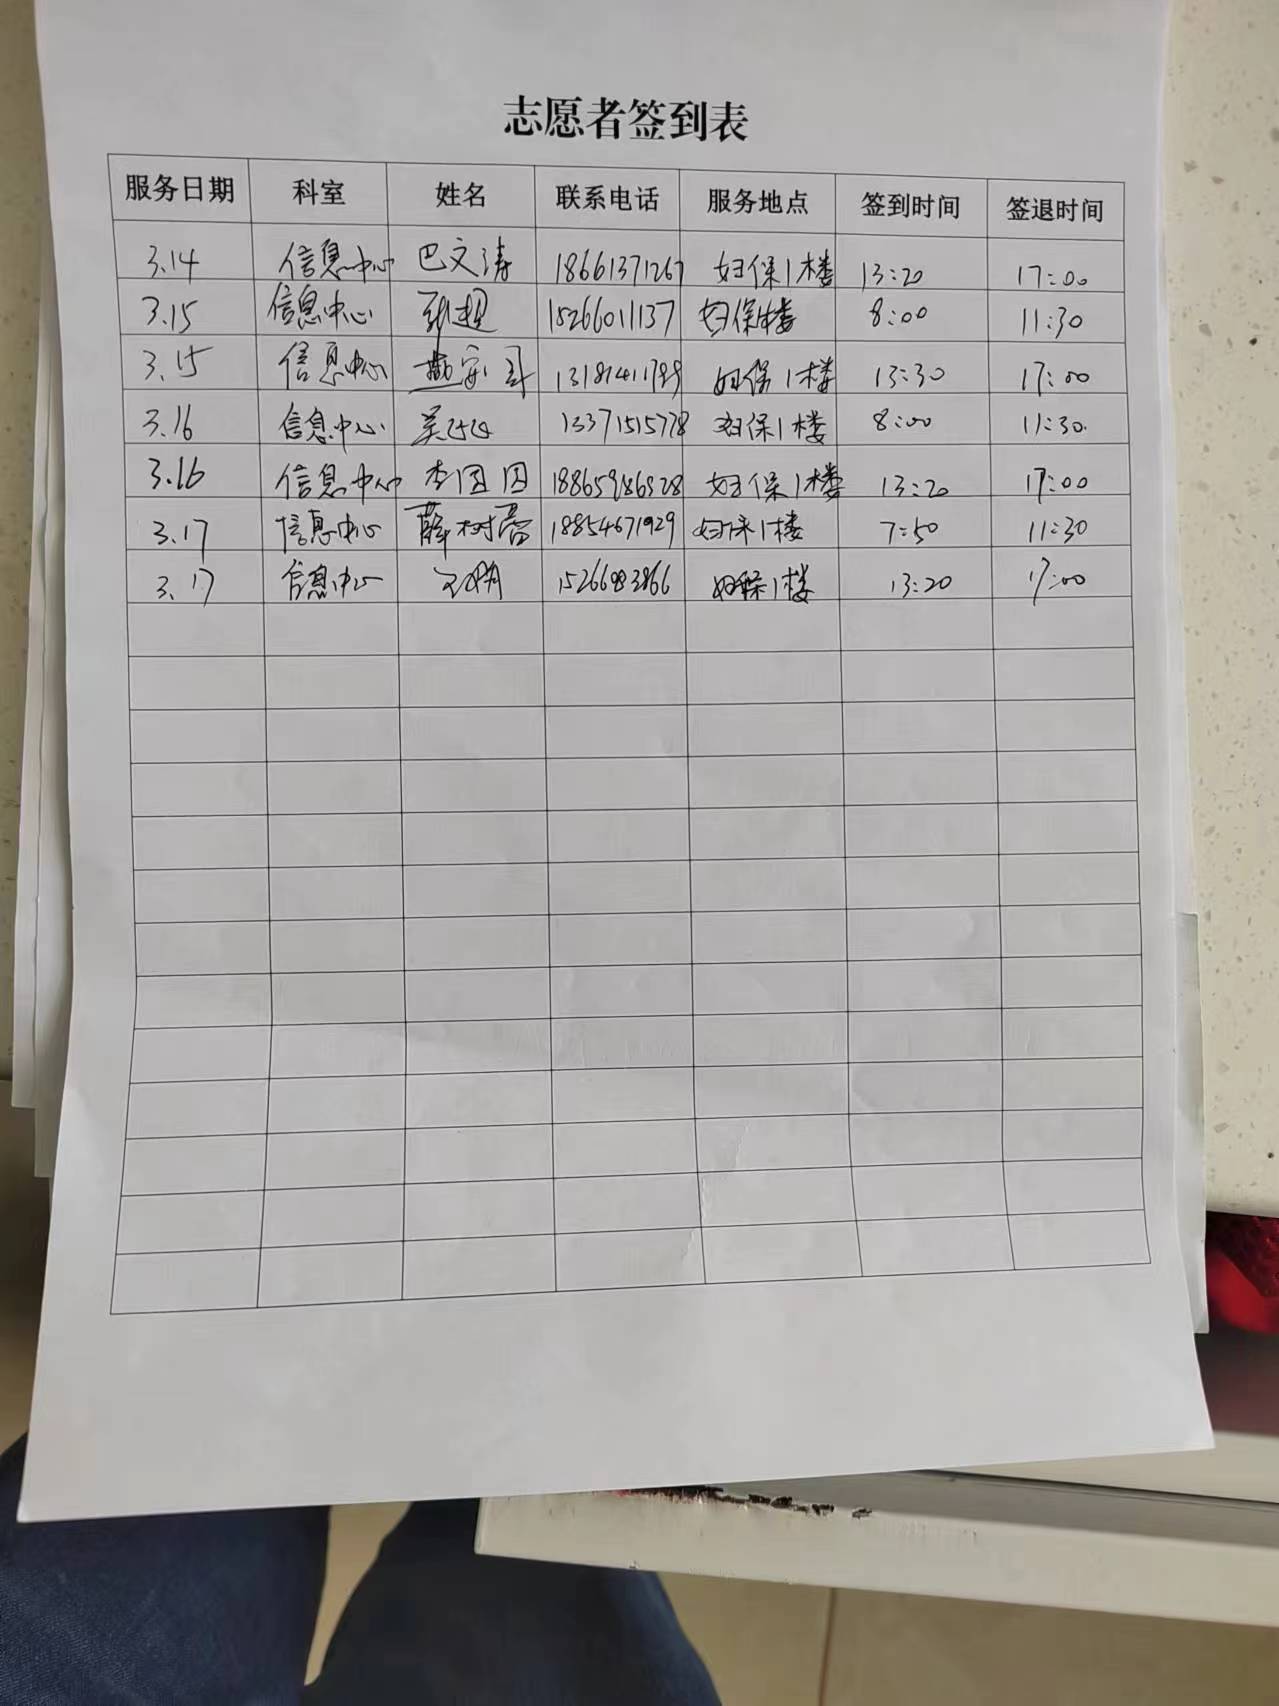 志愿者签到表
服务日期 科室 姓名 联系电话 服务地点 签到时间 签退时间
3.14 信息中心 巴文涛 18661371267 妇保1楼 13:20 17:00
3.15 信息中心 张超 15266011137 妇保1楼 8:00 11:30
3.15 信息中心 妇保1楼 13:30 17:00
3.16 信息中心 13371515778 妇保1楼 8:00 11:30
3.16 信息中心 李囡囡 18865986528 妇保1楼 13:20 17:00
3.17 信息中心 薛树蕾 18854671929 妇保1楼 7:50 11:30
3.17 信息中心 妇保1楼 13:20 17:00